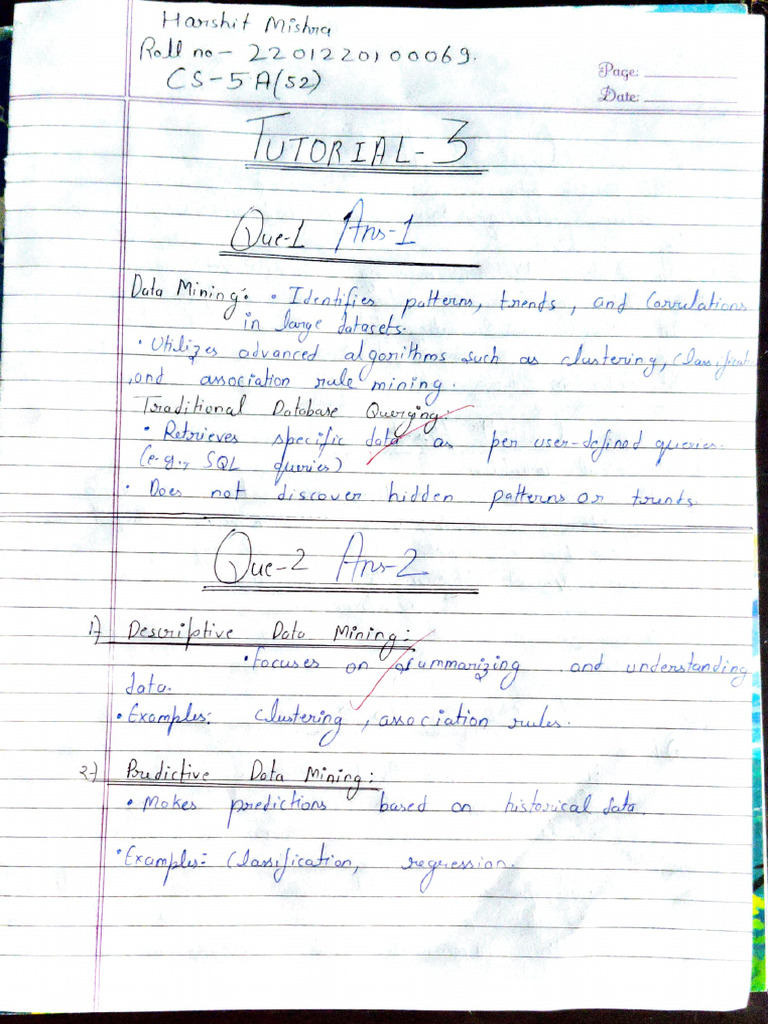 Harshit Mishra
Roll no- 2201220100069.
CS-5A(52)
Page:
Date:
TUTORIAL-3
Que-1 Ans-1
Data Mining: • Identifies patterns, trends, and Correlations
in large datasets.
• Utilizes advanced algorithms such as clustering, classificat
,and association rule mining.
Traditional Database Querying:
• Retrieves specific data as per user-defined queries.
(e.g., SQL queries)
• Does not discover hidden patterns or trends.
Que-2 Ans-2
1) Descriptive Data Mining:
• Focuses on summarizing and understanding
data.
• Examples: clustering, association rules.
2) Predictive Data Mining:
• Makes predictions based on historical data.
• Examples: Classification, regression.